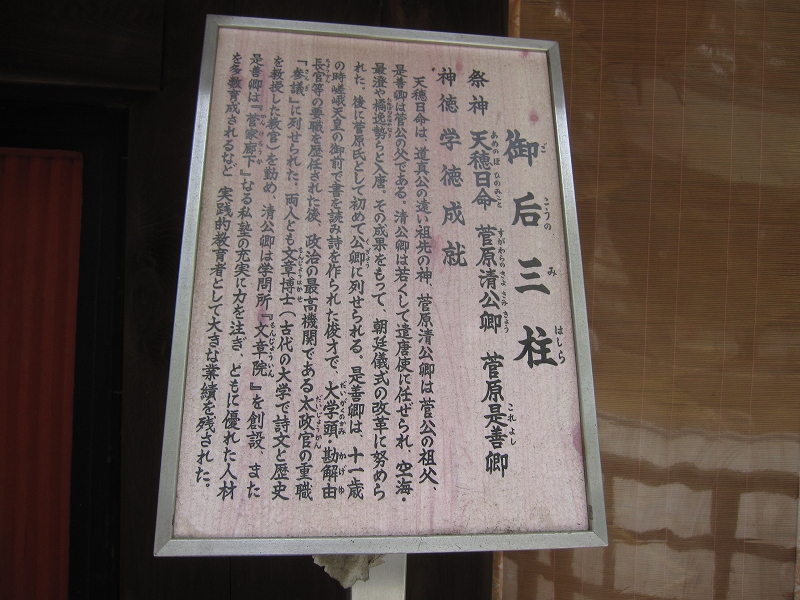 御后三柱
祭神 天穂日命 菅原清公卿 菅原是善卿
神徳 学徳成就
天穂日命は、道真公の遠い祖先の神、菅原清公卿は菅公の祖父、
是善卿は菅公の父である。清公卿は若くして遣唐使に任ぜられ、空海・
最澄や橘逸勢らと入唐。その成果をもって、朝廷儀式の改革に努めら
れた。後に菅原氏として初めて公卿に列せられる。是善卿は、十一歳
の時嵯峨天皇の御前で書を読み詩を作られた俊才で、大学頭・勘解由
長官等の要職を歴任された後、政治の最高機関である太政官の重職
「参議」に列せられた。両人とも文章博士（古代の大学で詩文と歴史
を教授した教官）を勤め、清公卿は学問所『文章院』を創設、また
是善卿は『菅家廊下』なる私塾の充実に力を注ぎ、ともに優れた人材
を多数育成されるなど 実践的教育者として大きな業績を残された。